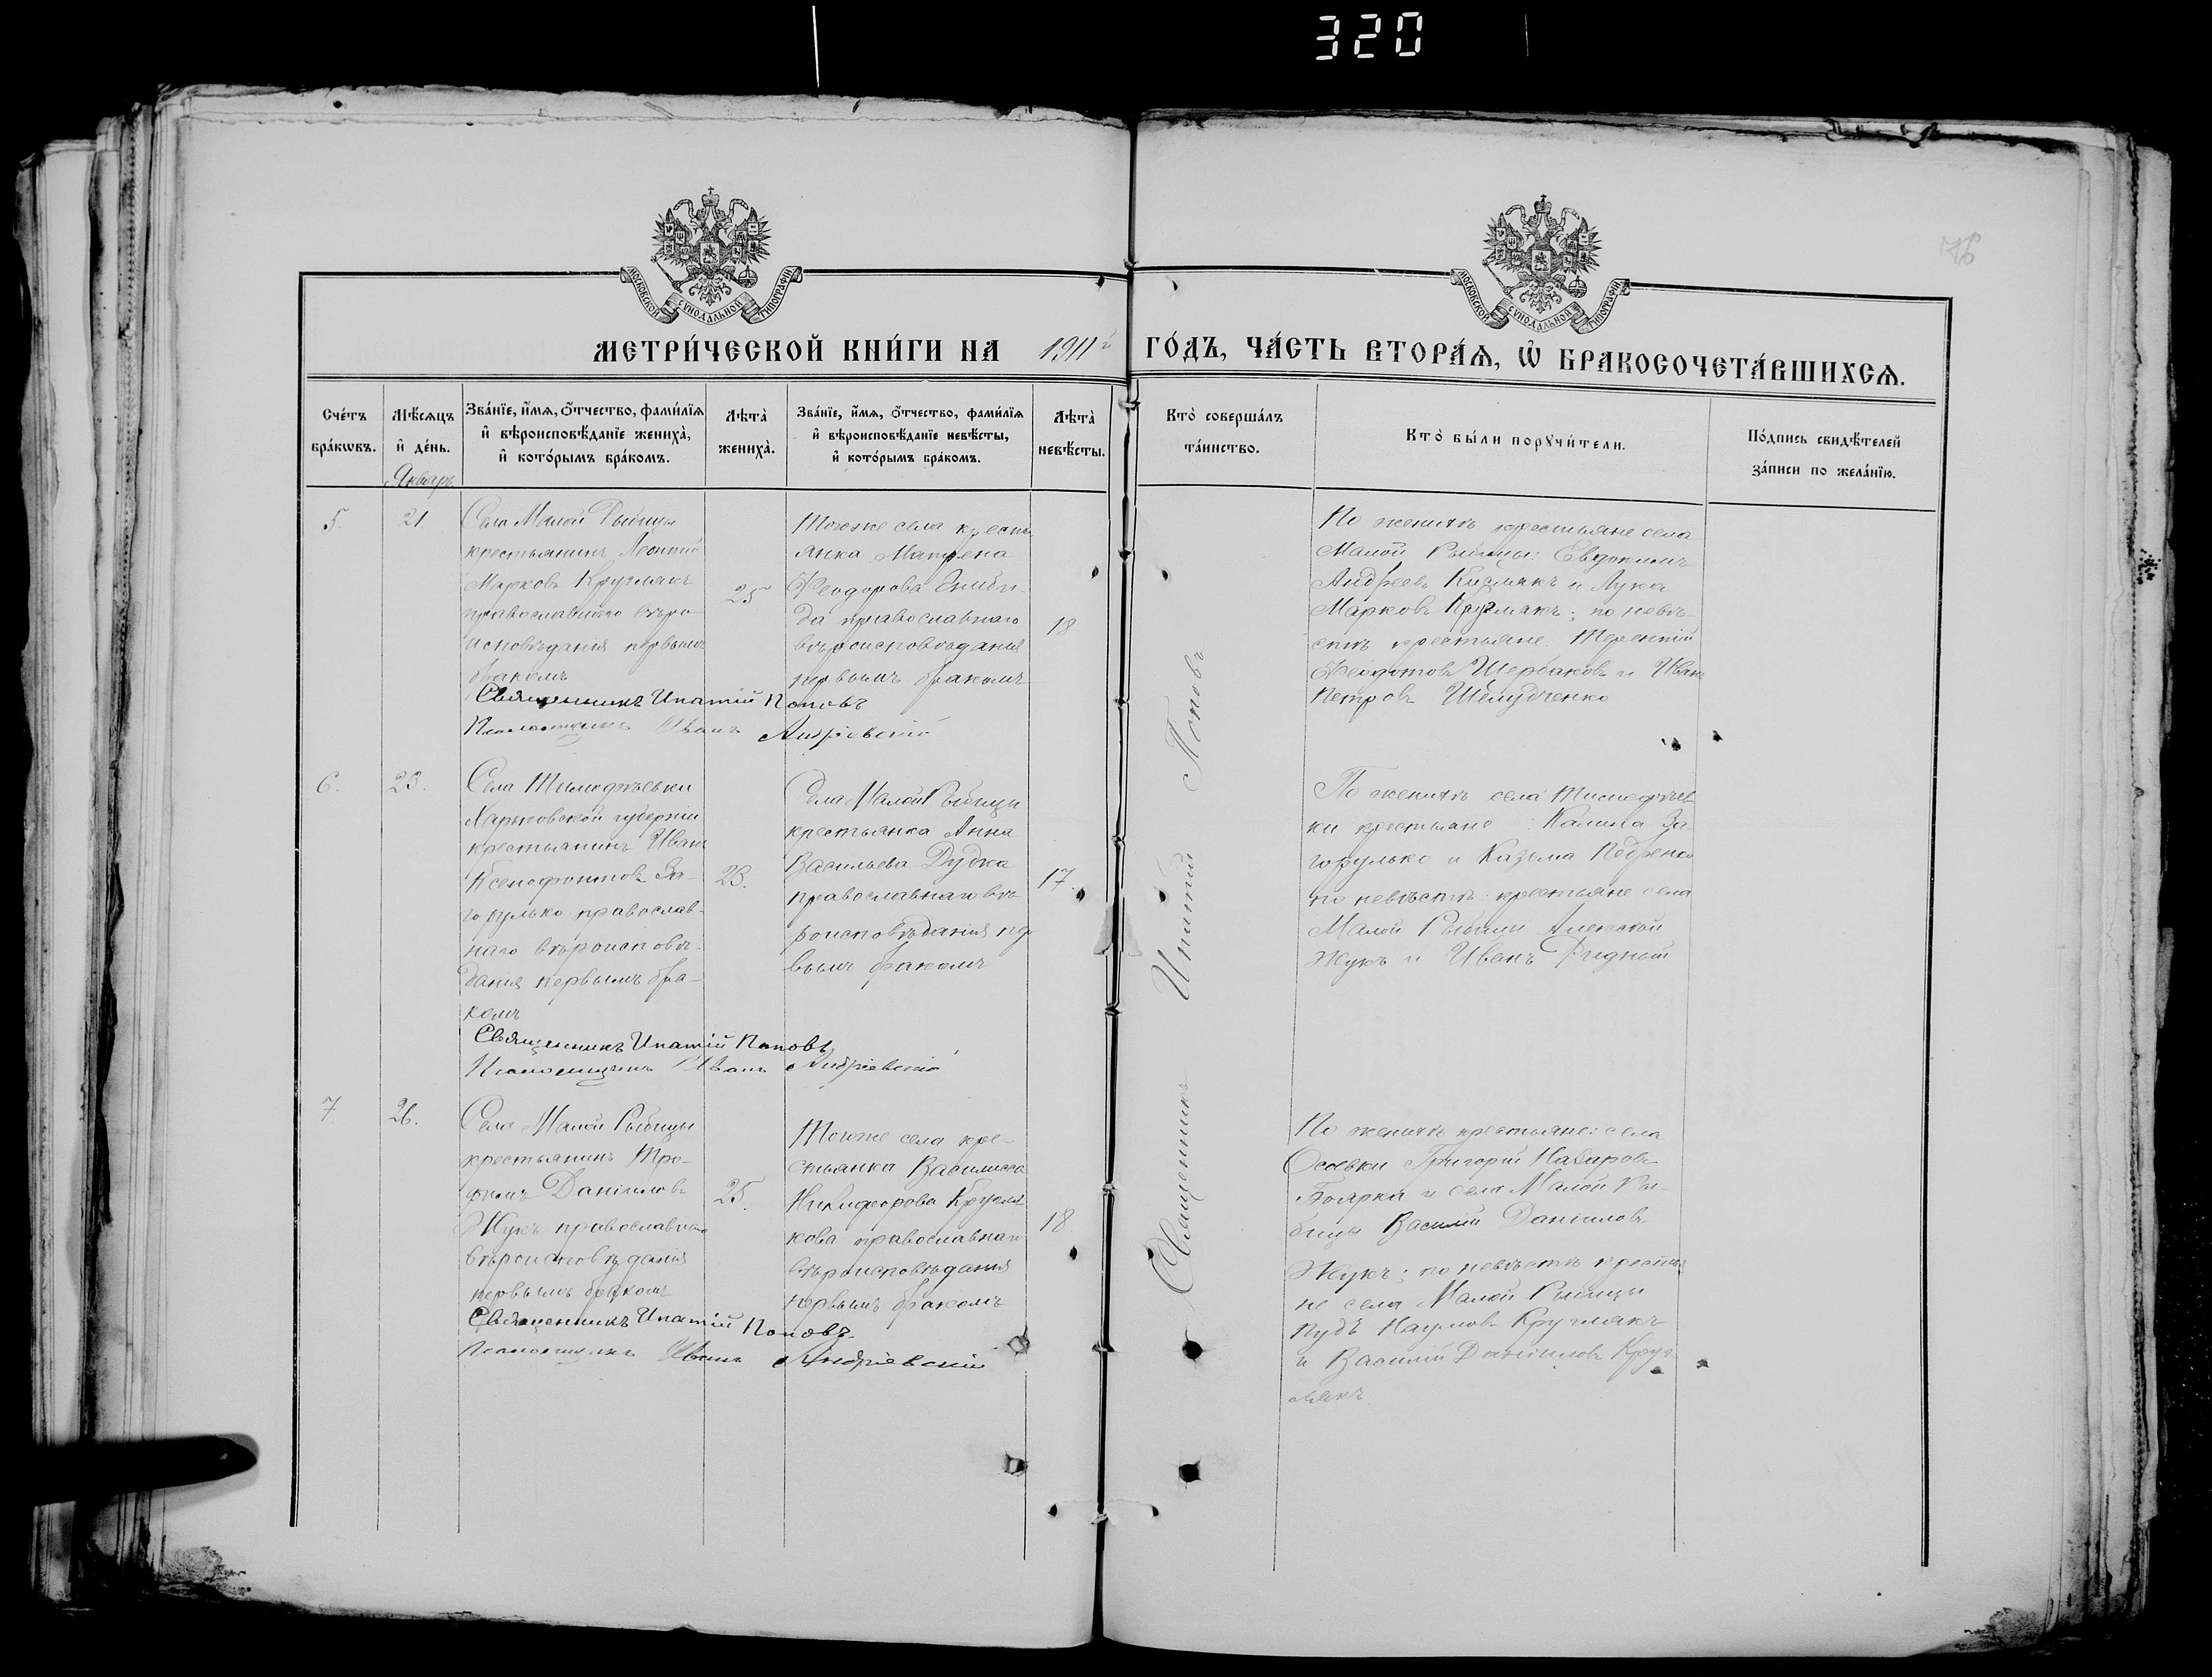 320
76
МОСКОВСКОЙ СѴНОДАЛЬНОЙ ТИПОГРАФІИ
МОСКОВСКОЙ СѴНОДАЛЬНОЙ ТИПОГРАФІИ
МЕТРИ́ЧЕСКОЙ КНИ́ГИ НА 1911й ГО́ДЪ, ЧА́СТЬ ВТОРА́Ѧ, Ѽ БРАКОСОЧЕТА́ВШИХСѦ.
Сче́тъ
бра́кѡвъ.
Мѣ́сѧцъ
и҆ де́нь.
Январь
Зва́нїе, и҆́мѧ, ѻ҆́тчество, фами́лїѧ
и҆ вѣроисповѣ́данїе жениха̀,
и҆ кото́рымъ бра́комъ.
Лѣта̀
жениха̀.
Зва́нїе, и҆́мѧ, ѻ҆́тчество, фами́лїѧ
и҆ вѣроисповѣ́данїе невѣ́сты,
и҆ кото́рымъ бра́комъ.
Лѣта̀
невѣ́сты.
Кто̀ соверша́лъ
та́инство.
Кто̀ бы́ли порꙋчи́тели.
По́дпись свидѣ́телей
за́писи по жела́нїю.
5.
21
Села Малой Рыбицы
крестьянинъ Леонтій
Марковъ Круглякъ
православнаго вѣро-
исповѣданія первымъ
бракомъ
25
Тогоже села кресть
янка Матрена
Феодорова
да православнаго
вѣроисповѣданія
первымъ бракомъ
18
По женихѣ крестьяне села
Малой Рыбицы: Евдокимъ
Андреевъ и Лука
Марковъ Круглякъ; по невѣ-
стѣ крестьяне Терентій
Феодотовъ Щербаковъ и Иванъ
Петровъ Шелудченко
Священникъ Ипатій Поповъ
Псаломщикъ Иванъ Андріевскій
6.
23.
Села Тимофѣевки
Харьковской губерніи
крестьянинъ Иванъ
Ксенофонтовъ За-
горулько православ-
наго вѣроисповѣ-
данія первымъ бра-
комъ
23.
Села Малой Рыбицы
крестьянка Анна
Васильева Дудка
православнаго вѣ
роисповѣданія пер
вымъ бракомъ
17.
По женихѣ села Тимофѣев
ки крестьяне: За
горулько и Козьма Педренко
по невѣстѣ: крестьяне села
Малой Рыбицы Алексѣй
Жукъ и Иванъ Ридный
Священникъ Ипатій Поповъ
Псаломщикъ Иванъ Андріевскій
7
26.
Села Малой Рыбицы
крестьянинъ Тро-
фимъ Даніиловъ
Жукъ православнаго
вѣроисповѣданія
первымъ бракомъ
25.
Тогоже села кре-
стьянка Василисса
Никифорова Кругля
кова православнаго
вѣроисповѣданія
первымъ бракомъ
18
По женихѣ крестьяне: села
Осоевки Григорій Назаровъ
Боярко и села Малой Ры-
бицы Василій Даніиловъ
Жукъ; по невѣстѣ крестья
не села Малой Рыбицы
Наумовъ Круглякъ
и Василій Даніиловъ Круг
лякъ.
Священникъ Ипатій Поповъ
Псаломщикъ Иванъ Андріевскій
Священникъ Ипатій Поповъ